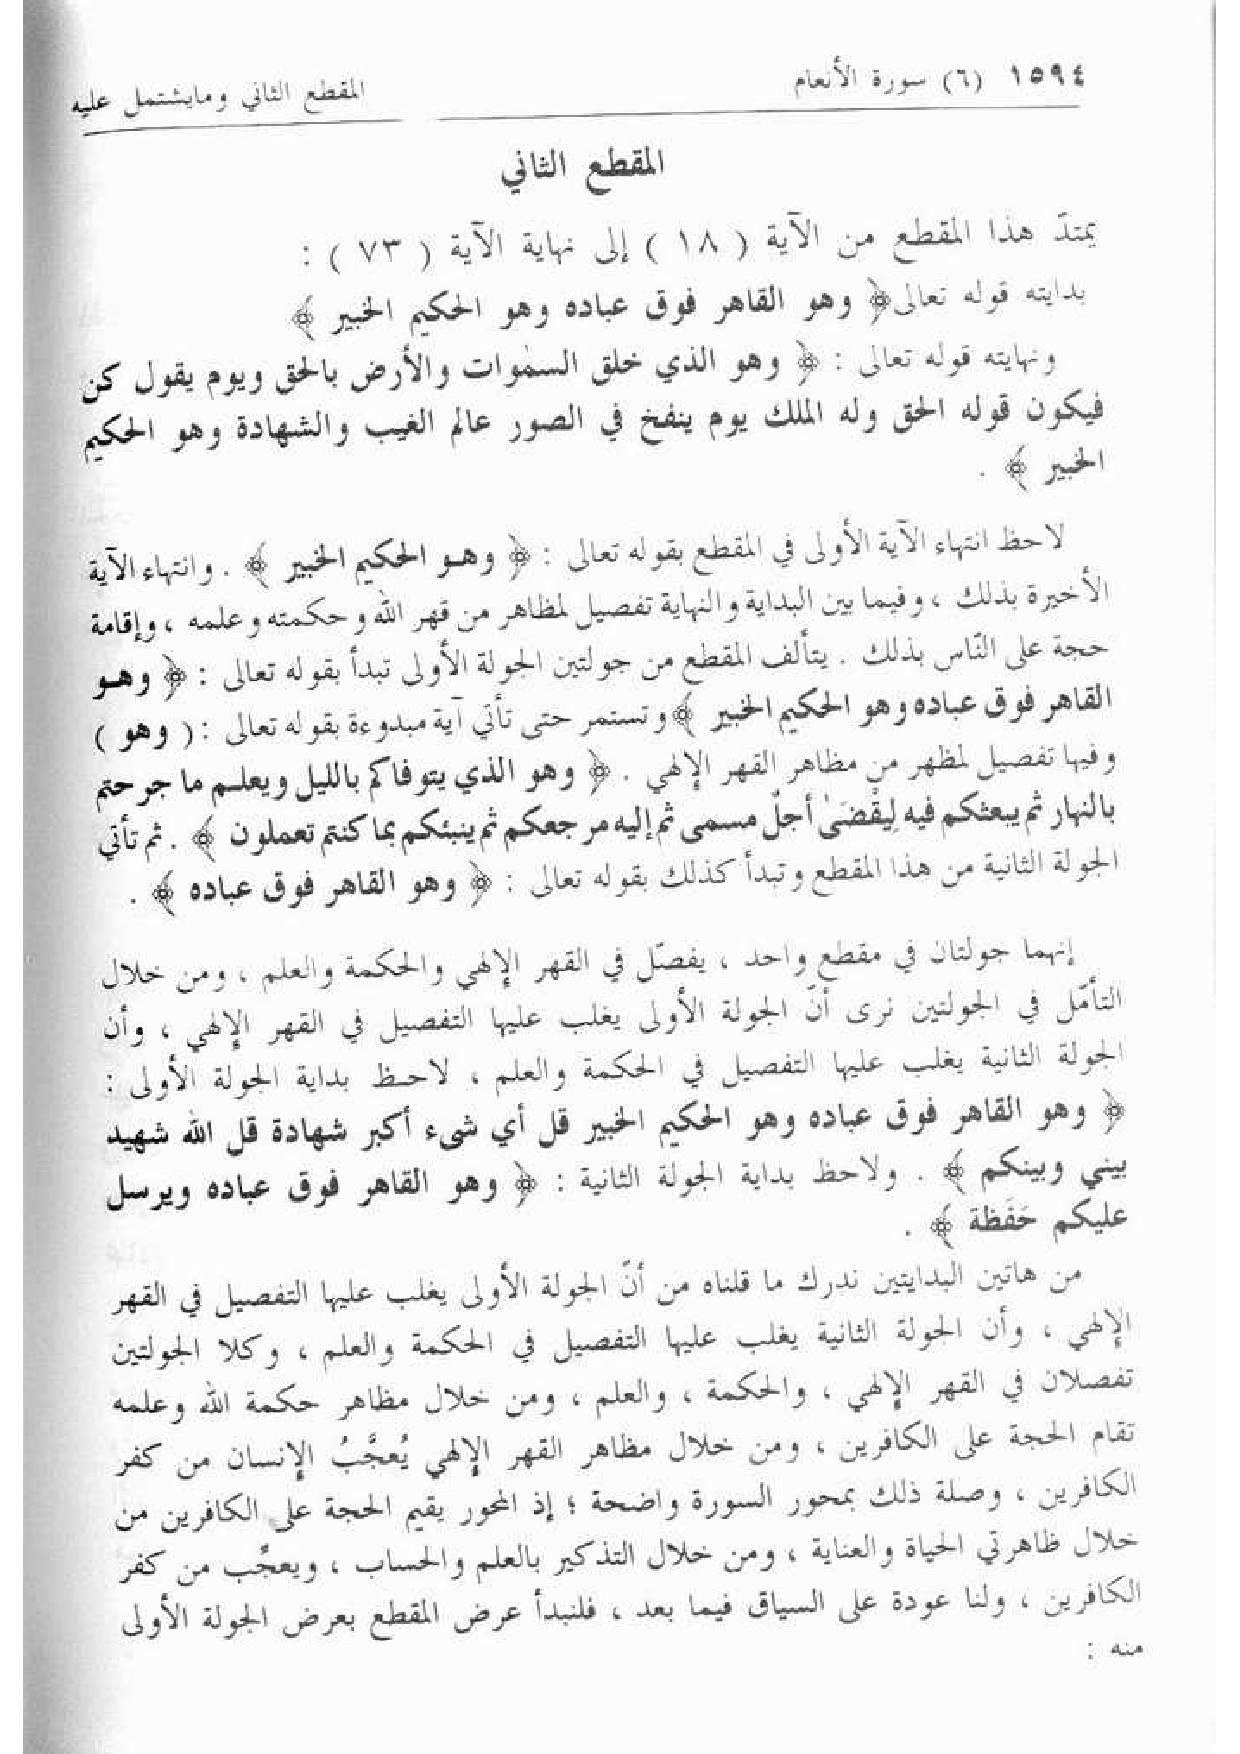 ١٥٩٤ (٦) سورة الأنعام
المقطع الثاني ومايشتمل عليه
المقطع الثاني
يمتدّ هذا المقطع من الآية ( ١٨ ) إلى نهاية الآية ( ٧٣ ) :
بدايته قوله تعالى ﴿ وهو القاهر فوق عباده وهو الحكيم الخبير ﴾
ونهايته قوله تعالى : ﴿ وهو الذي خلق السمٰوات والأرض بالحق ويوم يقول كن
فيكون قوله الحق وله الملك يوم ينفخ في الصور عالم الغيب والشهادة وهو الحكيم
الخبير ﴾ .
لاحظ انتهاء الآية الأولى في المقطع بقوله تعالى : ﴿ وهو الحكيم الخبير ﴾ . وانتهاء الآية
الأخيرة بذلك ، وفيما بين البداية والنهاية تفصيل لمظاهر من قهر الله وحكمته وعلمه ، وإقامة
حجة على النّاس بذلك . يتألف المقطع من جولتين الجولة الأولى تبدأ بقوله تعالى : ﴿ وهو
القاهر فوق عباده وهو الحكيم الخبير ﴾ وتستمر حتى تأتي آية مبدوءة بقوله تعالى : ( وهو )
وفيها تفصيل لمظهر من مظاهر القهر الإلهي . ﴿ وهو الذي يتوفاكم بالليل ويعلم ما جرحتم
بالنهار ثم يبعثكم فيه لِيُقْضَىٰ أجلٌ مسمى ثم إليه مرجعكم ثم ينبئكم بما كنتم تعملون ﴾ . ثم تأتي
الجولة الثانية من هذا المقطع وتبدأ كذلك بقوله تعالى : ﴿ وهو القاهر فوق عباده ﴾ .
إنهما جولتان في مقطع واحد ، يفصّل في القهر الإلهي والحكمة والعلم ، ومن خلال
التأمّل في الجولتين نرى أنّ الجولة الأولى يغلب عليها التفصيل في القهر الإلهي ، وأن
الجولة الثانية يغلب عليها التفصيل في الحكمة والعلم ، لاحظ بداية الجولة الأولى :
﴿ وهو القاهر فوق عباده وهو الحكيم الخبير قل أي شيء أكبر شهادة قل الله شهيد
بيني وبينكم ﴾ . ولاحظ بداية الجولة الثانية : ﴿ وهو القاهر فوق عباده ويرسل
عليكم حَفَظة ﴾ .
من هاتين البدايتين ندرك ما قلناه من أنّ الجولة الأولى يغلب عليها التفصيل في القهر
الإلهي ، وأن الجولة الثانية يغلب عليها التفصيل في الحكمة والعلم ، وكلا الجولتين
تفصلان في القهر الإلهي ، والحكمة ، والعلم ، ومن خلال مظاهر حكمة الله وعلمه
تقام الحجة على الكافرين ، ومن خلال مظاهر القهر الإلهي يُعجَّبُ الإنسان من كفر
الكافرين ، وصلة ذلك بمحور السورة واضحة ؛ إذ المحور يقيم الحجة على الكافرين من
خلال ظاهرتي الحياة والعناية ، ومن خلال التذكير بالعلم والحساب ، ويعجَّب من كفر
الكافرين ، ولنا عودة على السياق فيما بعد ، فلنبدأ عرض المقطع بعرض الجولة الأولى
منه :